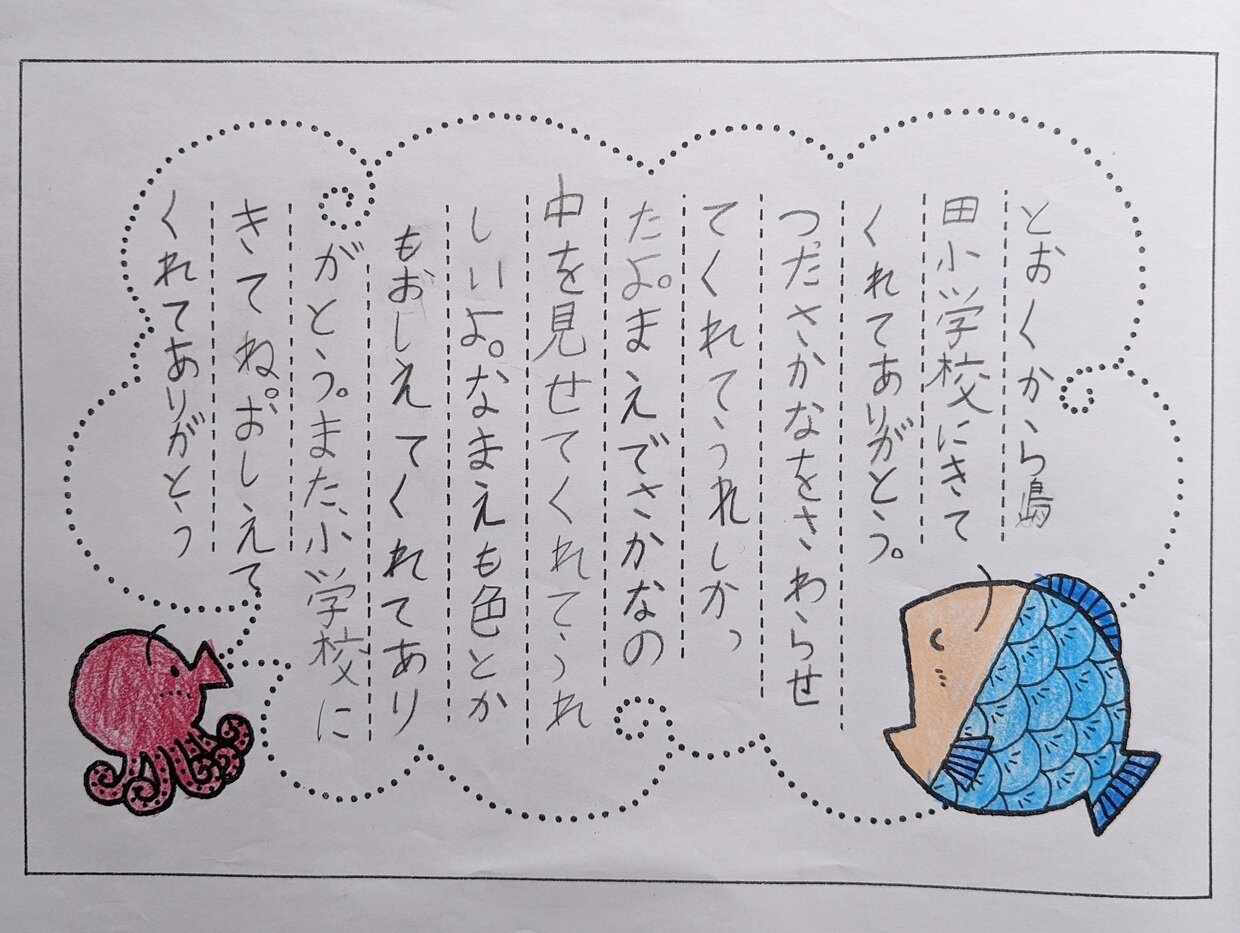 とおくから島
田小学校にきて
くれてありがとう。
つださかなをさわらせ
てくれてうれしかっ
たよ。まえでさかなの
中を見せてくれてうれ
しいよ。なまえも色とか
もおしえてくれてあり
がとう。また、小学校に
きてね。おしえて
くれてありがとう